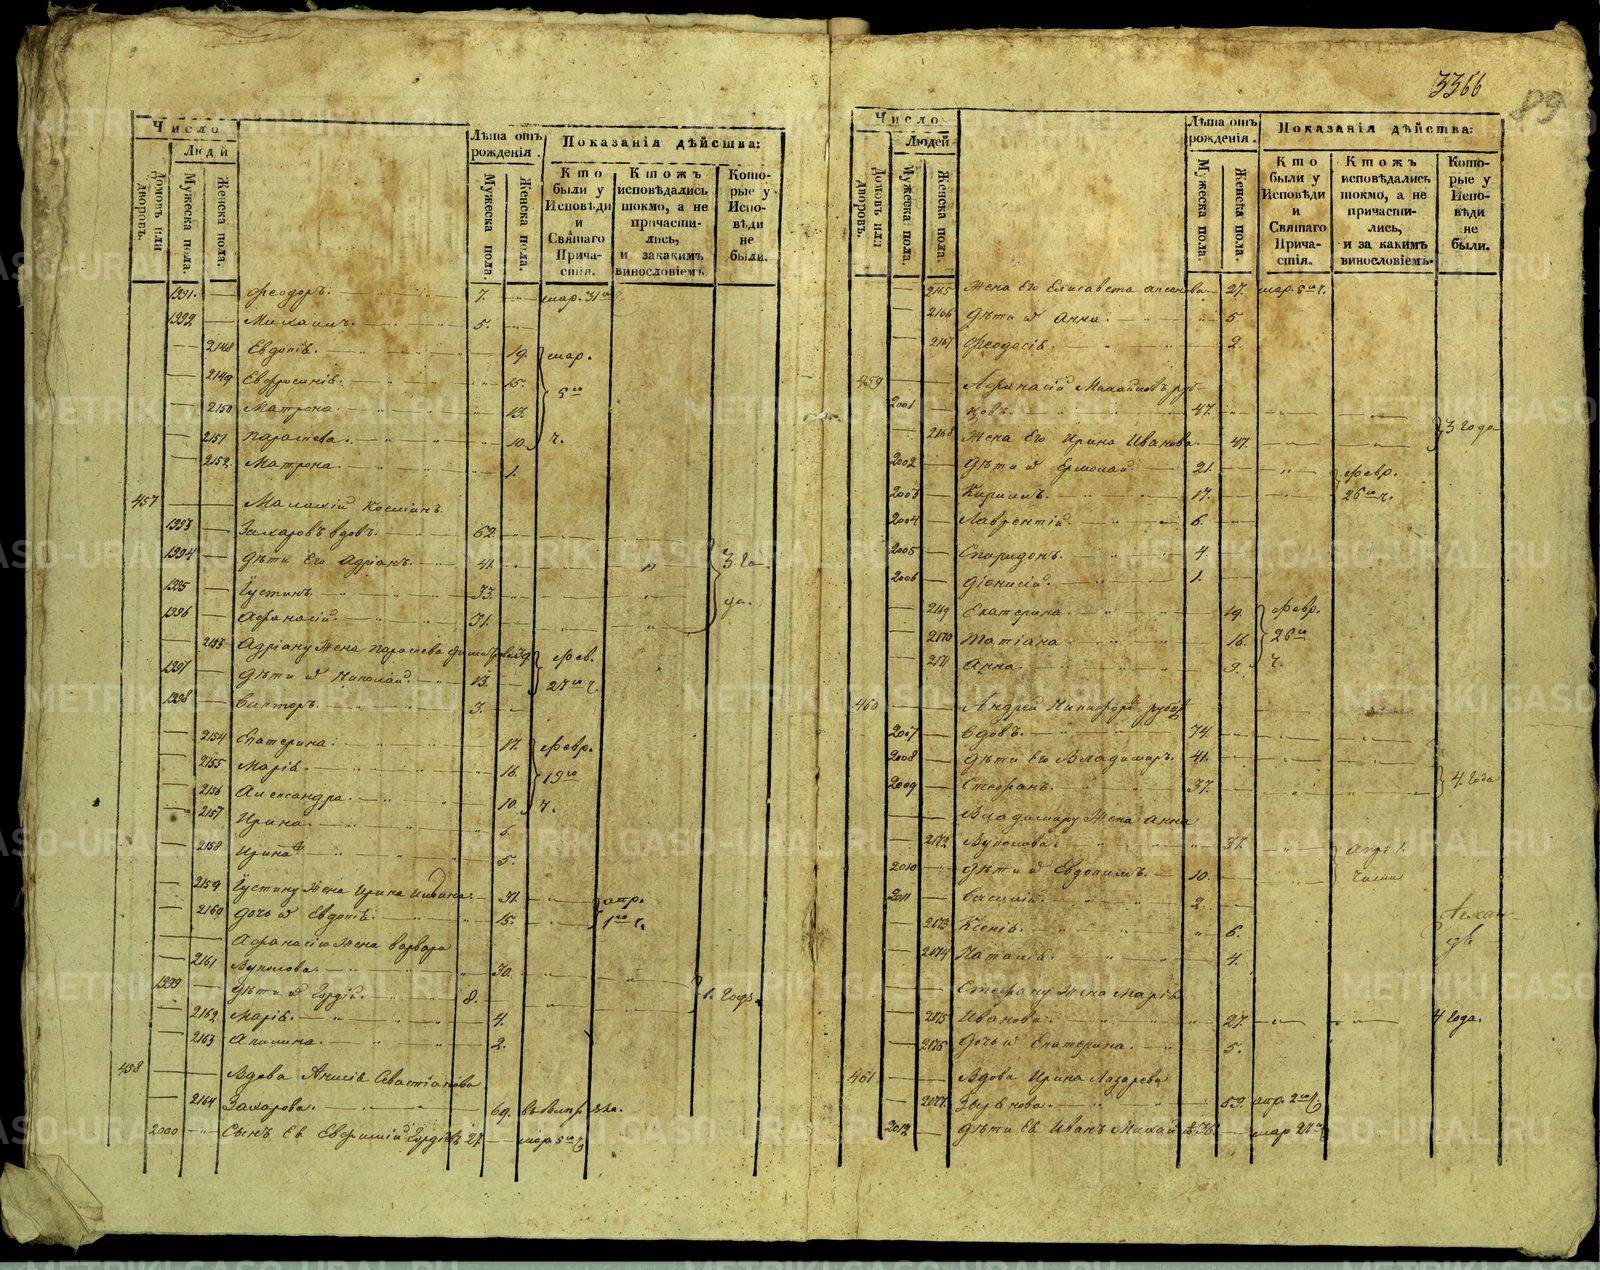 3366
89
Число
Людй
Домовъ или дворовъ.
Мужеска пола.
Женска пола.
Лѣта отъ рожденія.
Мужеска пола.
Женска пола.
Показанія дѣйства:
Кто были у Исповѣди и Святаго Прича-стія.
Ктожъ исповѣдались токмо, а не причасти-лись, и закакимъ винословіемъ.
Кото-рые у Испо-вѣди не были.
1991. Ѳеодоръ. 7. мар. 31го
1992 Михаилъ. 5.
2148 Евдокія. 19. мар.
2149 Евфросинія. 15. 5го
2150 Матрона. 13.
2151 Параскева. 10. ч.
2152 Матрона. 1.
457 Малахій Космінъ
1993 Захаровъ вдовъ. 62.
1994 Дѣти его Адріанъ. 41. 3 го
1995 Іустинъ. 33. да.
1996 Аѳанасій. 31.
2153 Адріану жена Параскева 39. фев.
1997 Дѣти их Николай. 13. 27го ч.
1998 Викторъ. 3.
2154 Екатерина. 17. февр.
2155 Марія. 16. 19го
2156 Александра. 10. ч.
2157 Ирина. 6.
2158 Ирина 5.
2159 Іустину жена Ирина 31. апр.
2160 Дочь их Евдокія. 15. 1го ч.
Аѳанасію жена Варвара
2161 Вуколова. 30.
1999 Дѣти их Гордій. 8. 1. годъ.
2162 Марія. 4.
2163 Акилина. 2.
458 Вдова Анисія Савастіанова
2164 Захарова. 69.
2000 Сынъ ея 27. мар. 5го
Число
Людей
Домовъ или дворовъ.
Мужеска пола.
Женска пола.
Лѣта отъ рожденія.
Мужеска пола.
Женска пола.
Показанія дѣйства:
Кто были у Исповѣди и Святаго Прича-стія.
Ктожъ исповѣдались токмо, а не причасти-лись, и за какимъ винословіемъ.
Кото-рые у Испо-вѣди не были.
2165 Жена его Елисавета 27. мар. 8го ч.
2166 Дѣти их Анна. 5
2167 Ѳеодосія. 2.
459 Аѳанасій Михайловъ Руб-
2001 цовъ. 47.
2168 Жена его Ирина Иванова. 47. 3 года
2002 Дѣти их Ермолай. 21. февр.
2003 Кириллъ. 17. 26го ч.
2004 Лаврентій. 6.
2005 Спиридонъ. 4.
2006 Діонисій. 1.
2169 Екатерина. 19. февр.
2170 Татіана. 16. 26го
2171 Анна. 9. ч.
460 Андрей Никифоровъ Рубцовъ
2007 вдовъ. 74.
2008 Дѣти его Владимиръ. 41.
2009 Стефанъ. 37. 4 года
Владимиру жена Анна
2172 Вуколова. 37. апр. 1.
2010 Дѣти их Евдокимъ. 10. числа
2011 Василій. 2.
2173 Ксенія. 6.
2174 Наталія. 4.
Стефану жена Марія
2175 Иванова. 27. 4 года.
2176 Дочь их Екатерина. 5.
461 Вдова Ирина Лазарева
2177 59. апр. 2го
2012 Дѣти ея Иванъ 36. мар 21го